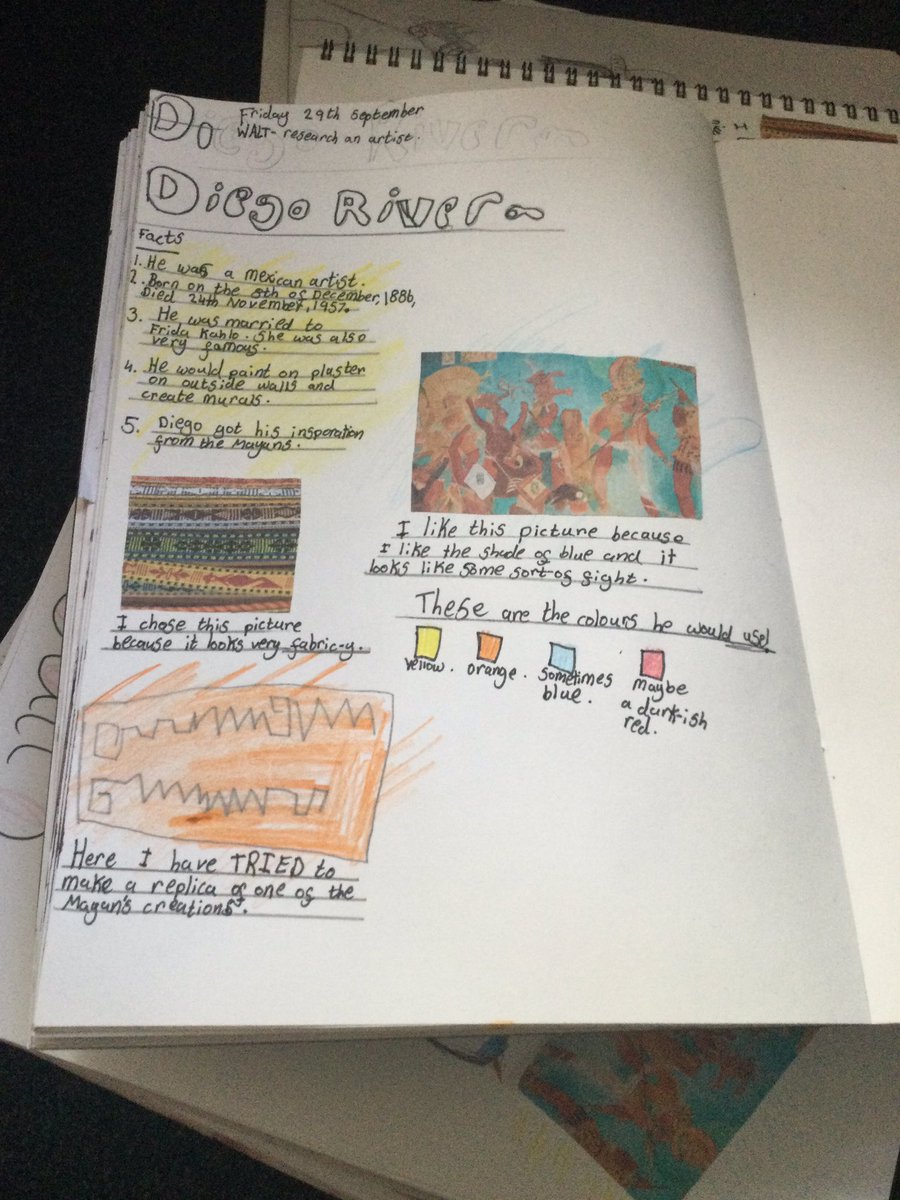 Friday 29th September
WALT- research an artist.
Diego Rivera
Facts
1. He was a mexican artist.
2. Born on the 8th of December, 1886,
Died 24th November, 1957.
3. He was married to
Frida Kahlo. She was also
very famous.
4. He would paint on plaster
on outside walls and
create murals.
5. Diego got his insperation
from the Mayans.
I chose this picture
because it looks very fabric-y.
Here I have TRIED to
make a replica of one of the
Mayan's creations.
I like this picture because
I like the shade of blue and it
looks like some sort of fight.
These are the colours he would use!
yellow.
orange.
sometimes
blue.
maybe
a dark-ish
red.